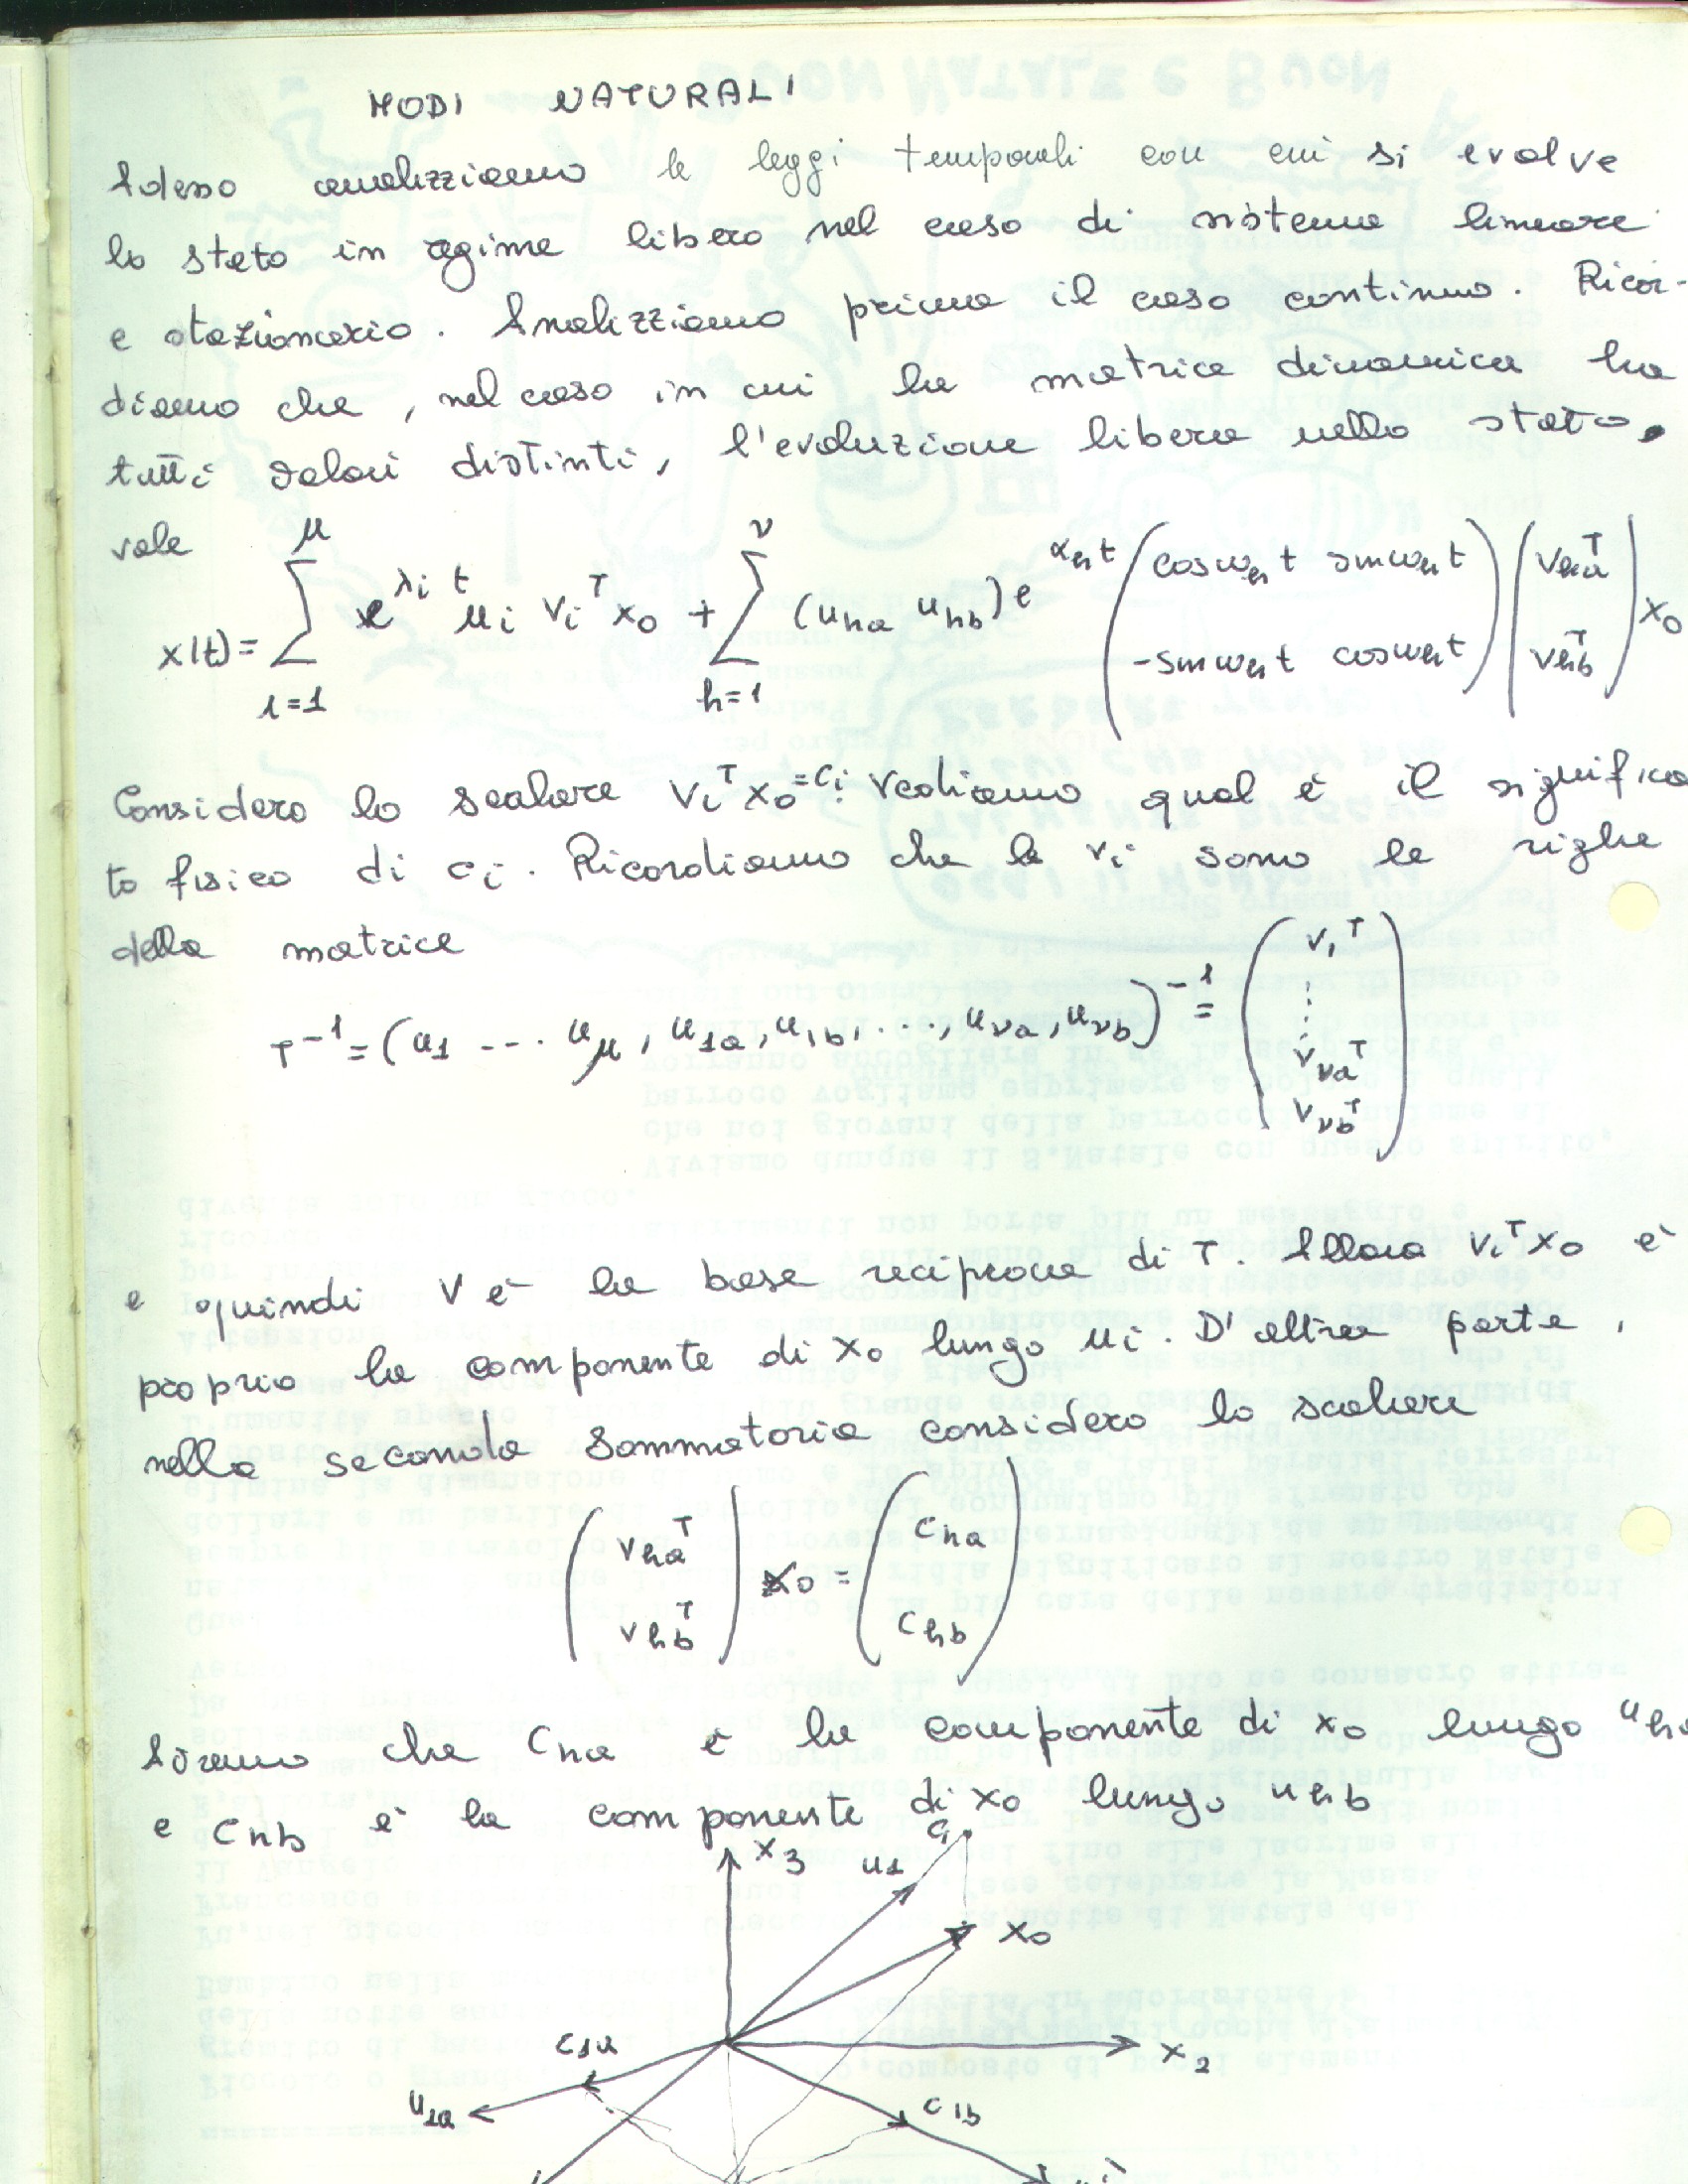 MODI NATURALI
Adesso analizziamo le leggi temporali con cui si evolve
lo stato in regime libero nel caso di sistema lineare
e stazionario. Analizziamo prima il caso continuo. Ricor-
diamo che, nel caso in cui la matrice dinamica ha
tutti valori distinti, l'evoluzione libera nello stato
vale
x(t)= \sum_{i=1}^{μ} e^{λ_i t} u_i v_i^T x_0 + \sum_{h=1}^{ν} (u_{ha} u_{hb}) e^{α_h t} ( cosω_h t sinω_h t ; -sinω_h t cosω_h t ) ( v_{ha}^T ; v_{hb}^T ) x_0
Considero lo scalare v_i^T x_0 = c_i: vediamo qual è il significa
to fisico di c_i. Ricordiamo che le v_i sono le righe
della matrice
T^{-1} = (u_1 --- u_μ, u_{1a}, u_{1b}, ..., u_{νa}, u_{νb})^{-1} = ( v_1^T ; ⋮ ; v_{νa}^T ; v_{νb}^T )
e quindi V è la base reciproca di T. Allora v_i^T x_0 è
proprio la componente di x_0 lungo u_i. D'altra parte,
nella seconda sommatoria considero lo scalare
( v_{ha}^T ; v_{hb}^T ) x_0 = ( c_{ha} ; c_{hb} )
Avremo che c_{ha} è la componente di x_0 lungo u_{ha}
e c_{hb} è la componente di x_0 lungo u_{hb}
x_3
u_1
c_1
x_0
x_2
c_{1a}
u_{1a}
c_{1b}